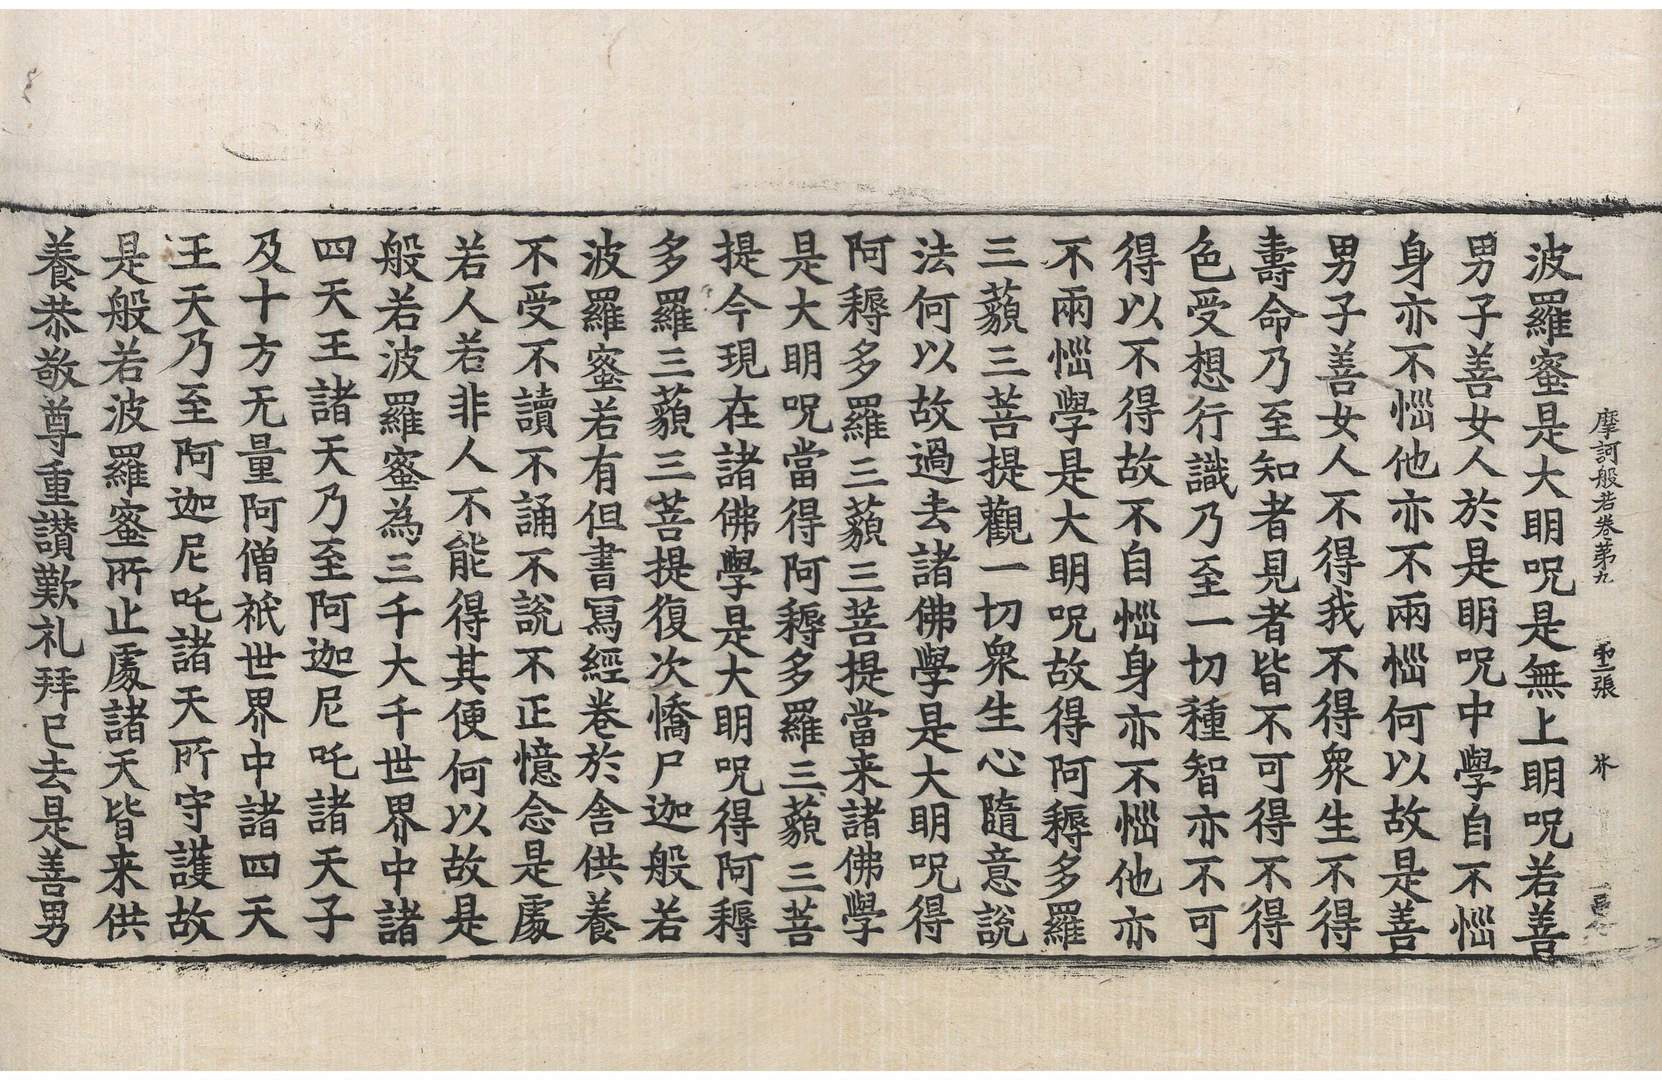 摩訶般若卷第九 第二張 芥
波羅蜜是大明呪是無上明呪若善
男子善女人於是明呪中學自不惱
身亦不惱他亦不兩惱何以故是善
男子善女人不得我不得眾生不得
壽命乃至知者見者皆不可得不得
色受想行識乃至一切種智亦不可
得以不得故不自惱身亦不惱他亦
不兩惱學是大明呪故得阿耨多羅
三藐三菩提觀一切眾生心隨意說
法何以故過去諸佛學是大明呪得
阿耨多羅三藐三菩提當来諸佛學
是大明呪當得阿耨多羅三藐三菩
提今現在諸佛學是大明呪得阿耨
多羅三藐三菩提復次憍尸迦般若
波羅蜜若有但書寫經卷於舍供養
不受不讀不誦不說不正憶念是處
若人若非人不能得其便何以故是
般若波羅蜜為三千大千世界中諸
四天王諸天乃至阿迦尼吒諸天子
及十方无量阿僧祇世界中諸四天
王天乃至阿迦尼吒諸天所守護故
是般若波羅蜜所止處諸天皆来供
養恭敬尊重讃歎礼拜已去是善男